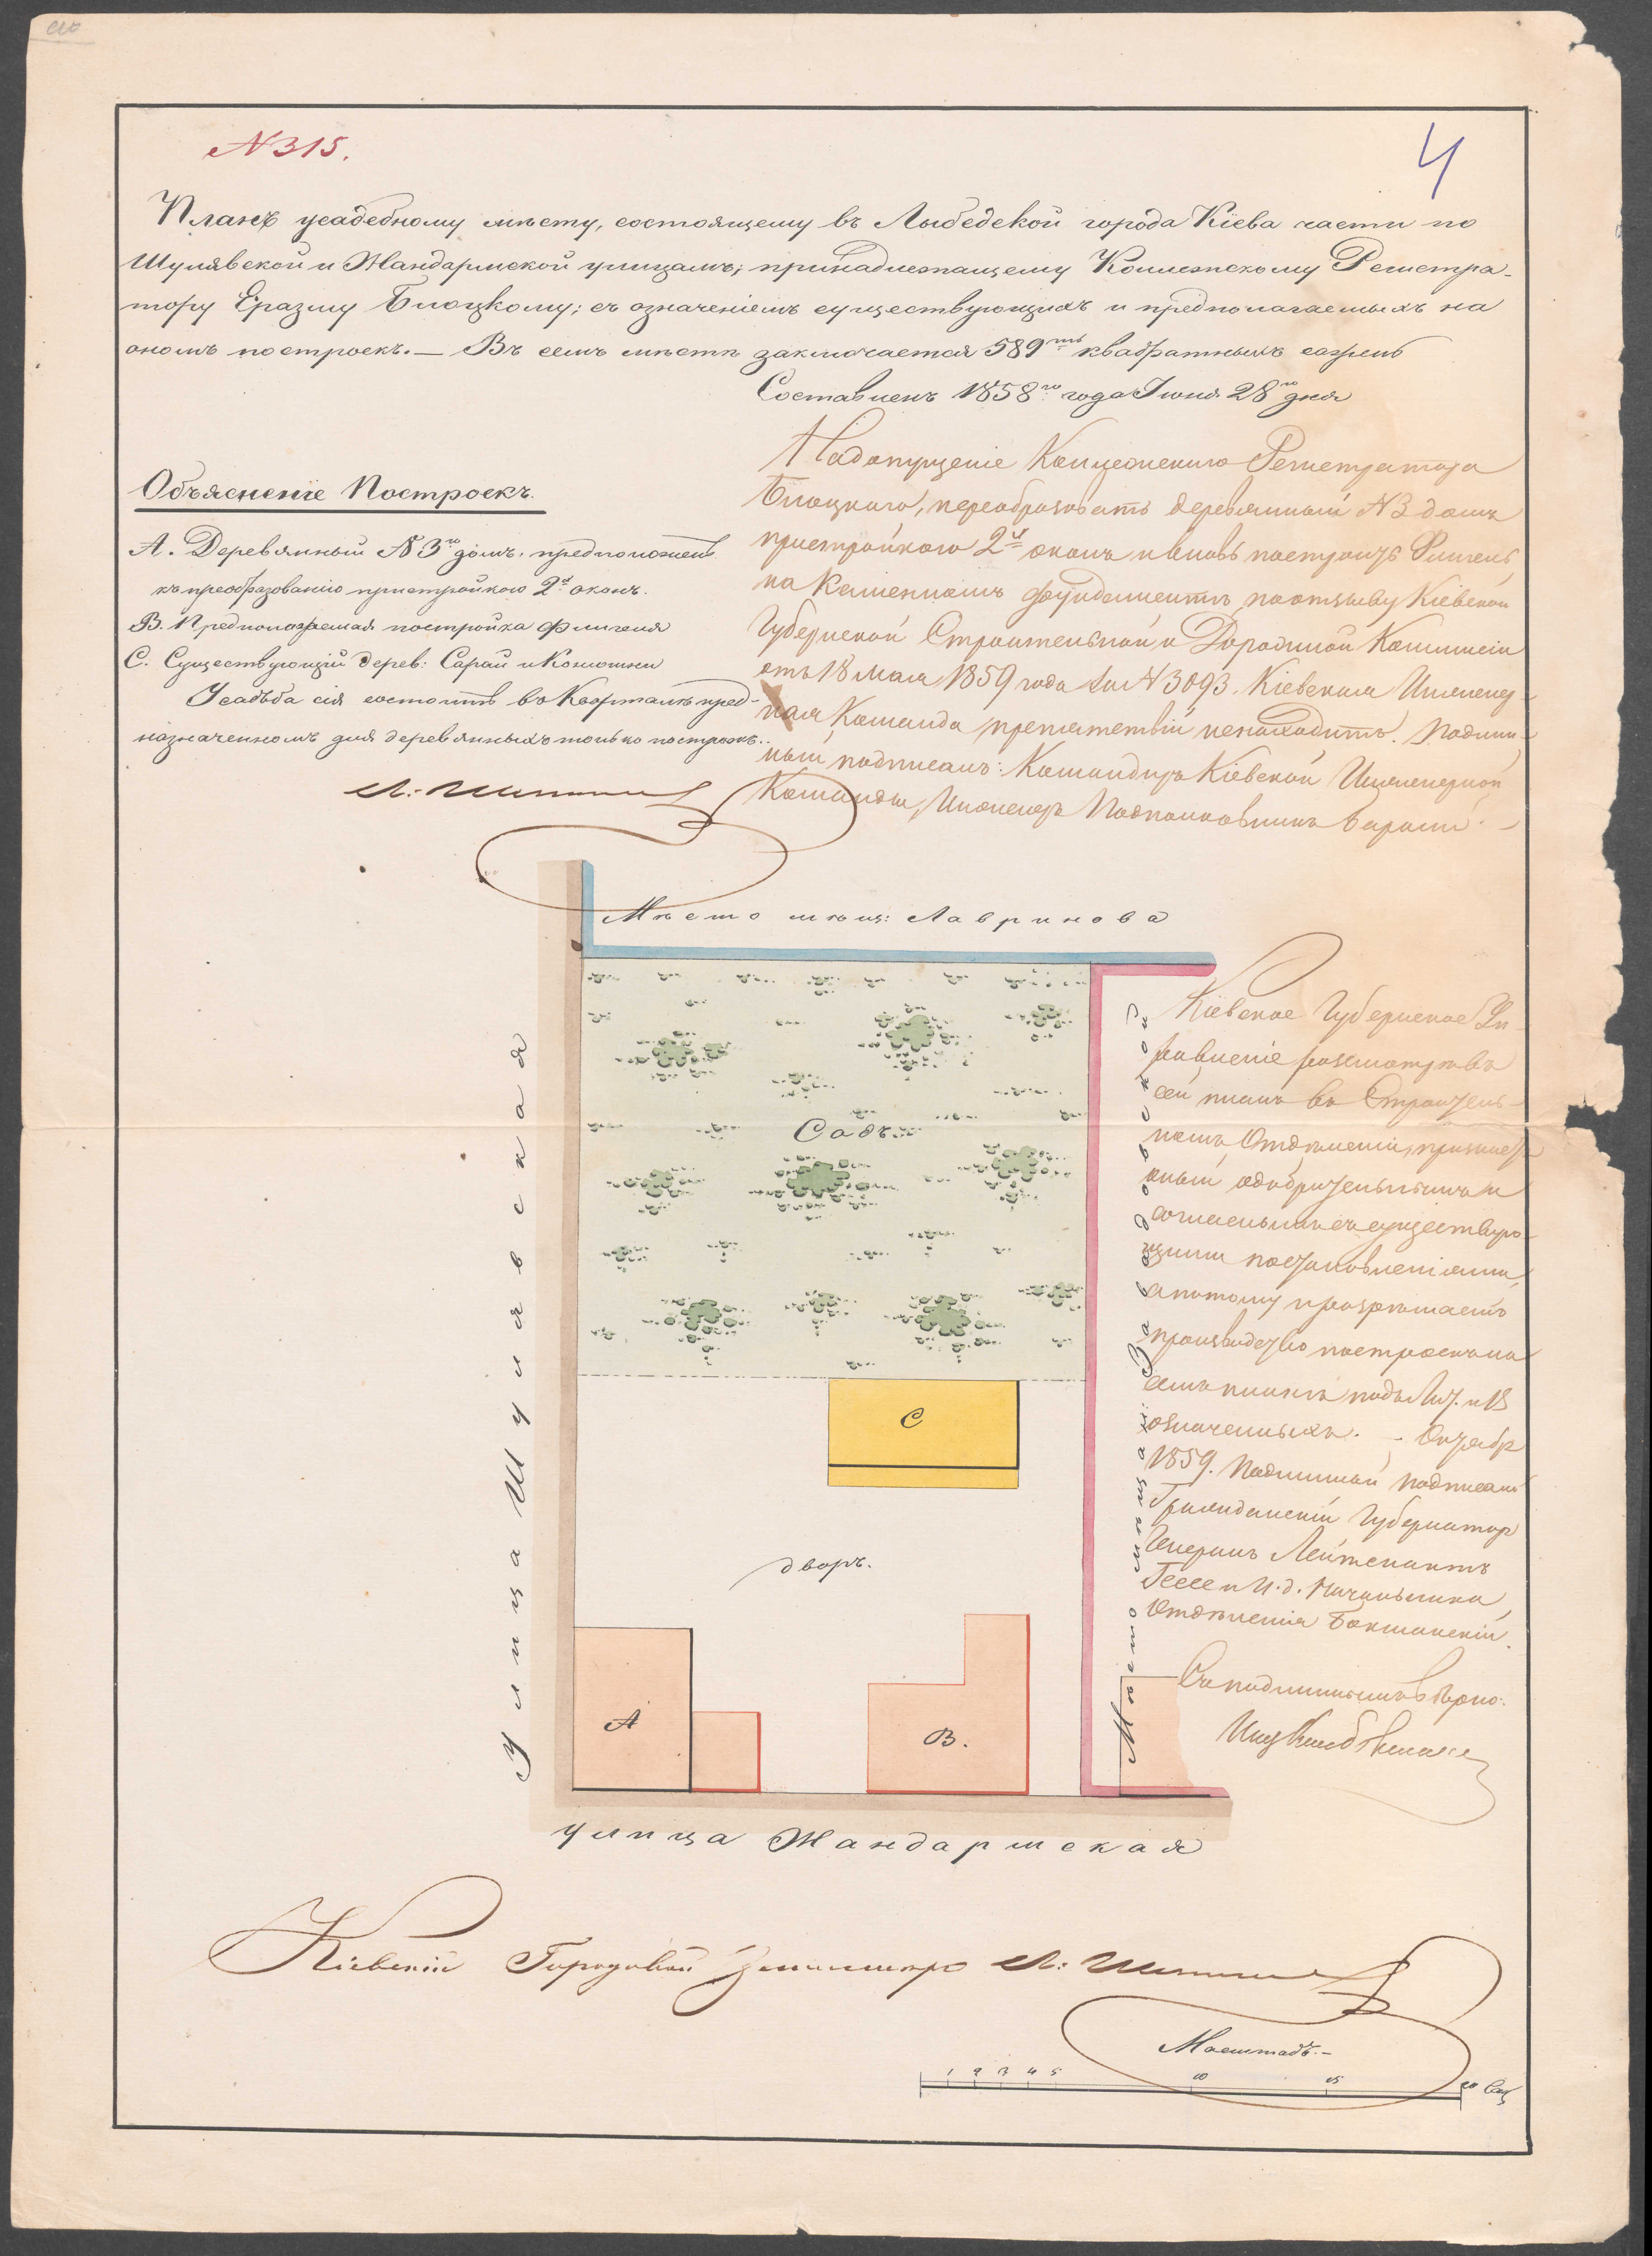 N 315.
4
Планъ усадебному мѣсту, состоящему въ Лыбедской города Кіева части по
Шулявской и Жандармской улицамъ; принадлежащему Коллежскому Регистра-
тору Еразму Блоцкому; съ означеніемъ существующихъ и предполагаемыхъ на
ономъ построекъ. — Въ семъ мѣстѣ заключается 589ть квадратныхъ сажень
Составленъ 1858го года Іюня 28го дня
Объясненіе Построекъ.
А. Деревянный N 3го домъ, предположенъ
къ преобразованію пристройкою 2х оконъ.
В. Предполагаемая постройка Флигеля
С. Существующій дерев: Сарай и Конюшни
Усадьба сія состоитъ въ Кварталѣ пред-
назначенномъ для деревянныхъ только построекъ.
На допущеніе Коллежскаго Регистратора
Блоцкаго, переобразовать деревянный N3 домъ
пристройкою 2х оконъ и вновь построить Флигель
на каменномъ фундаментѣ, по отзыву Кіевской
Губернской Строительной и Дорожной Коммисіи
отъ 18 Мая 1859 года за N 3093, Кіевская Инженер-
ная Команда препятствій не находитъ. Подлин-
ный подписалъ: Командиръ Кіевской Инженерной
Команды, Инженеръ Подполковникъ
Мѣсто мѣщ: Лавринова
Садъ.
С
дворъ.
А
В.
Улица Шулявская
Мѣсто мѣщан:
улица Жандармская
Кіевское Губернское Уп-
равленіе разсмотрѣвъ
сей планъ въ Строитель-
номъ Отдѣленіи, признаетъ
оный одобрительнымъ и
согласнымъ съ существую-
щими постановленіями,
а потому и разрѣшаетъ
производство построекъ на
семъ планѣ подъ Лит. и В
означенныхъ. - Октябр
1859. Подлинный подписали
Гражданскій Губернаторъ
Генералъ Лейтенантъ
Гессе и И.д. Начальника
Отдѣленія
Съ подлиннымъ вѣрно:
Кіевскій Городовой Землемѣръ
Масштабъ.-
1 2 3 4 5 10 15 20 Саж